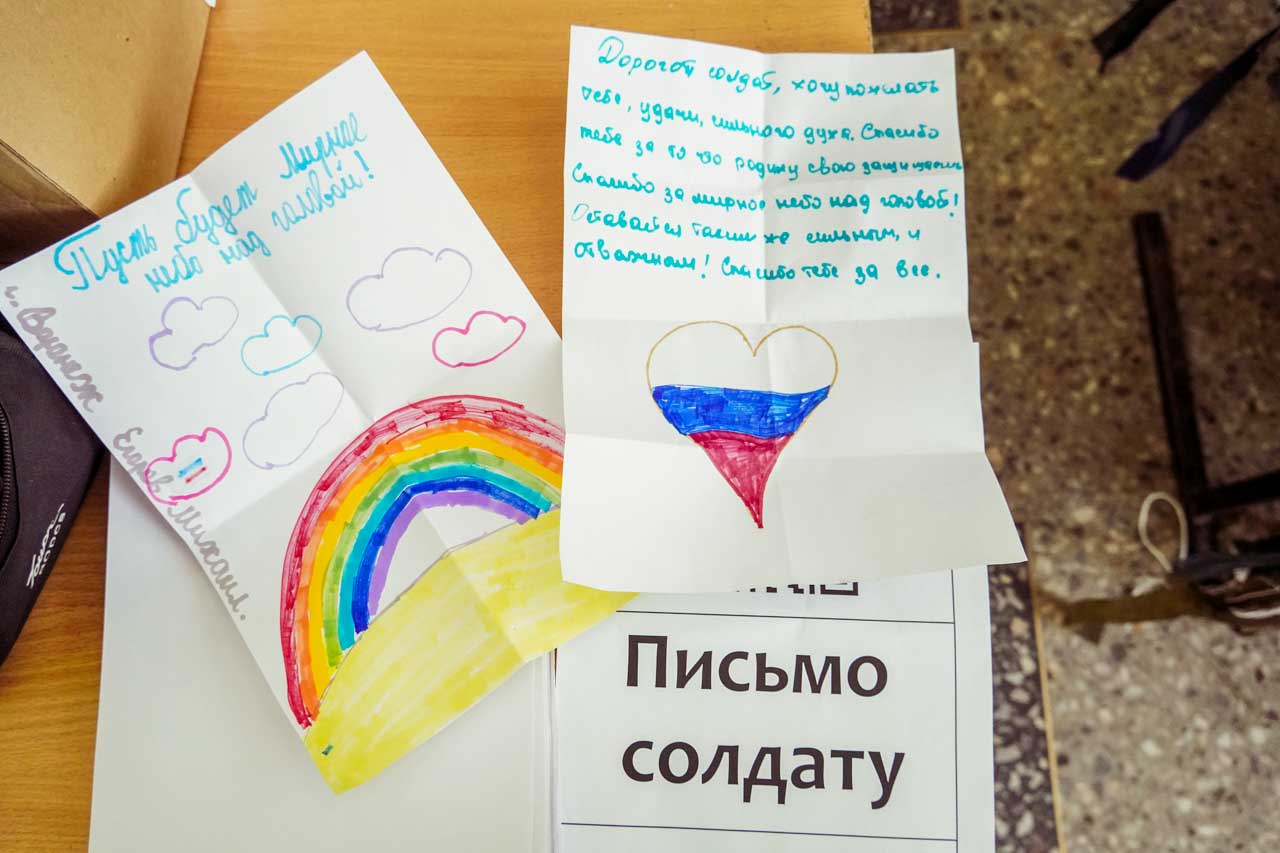 Пусть будет мирное
небо над головой!
г. Воронеж
Егоров Михаил.
Дорогой солдат, хочу пожелать
тебе, удачи, сильного духа. Спасибо
тебе за то что родину свою защищаешь
Спасибо за мирное небо над головой!
Оставайся таким же сильным, и
отважным! Спасибо тебе за все.
Письмо
солдату